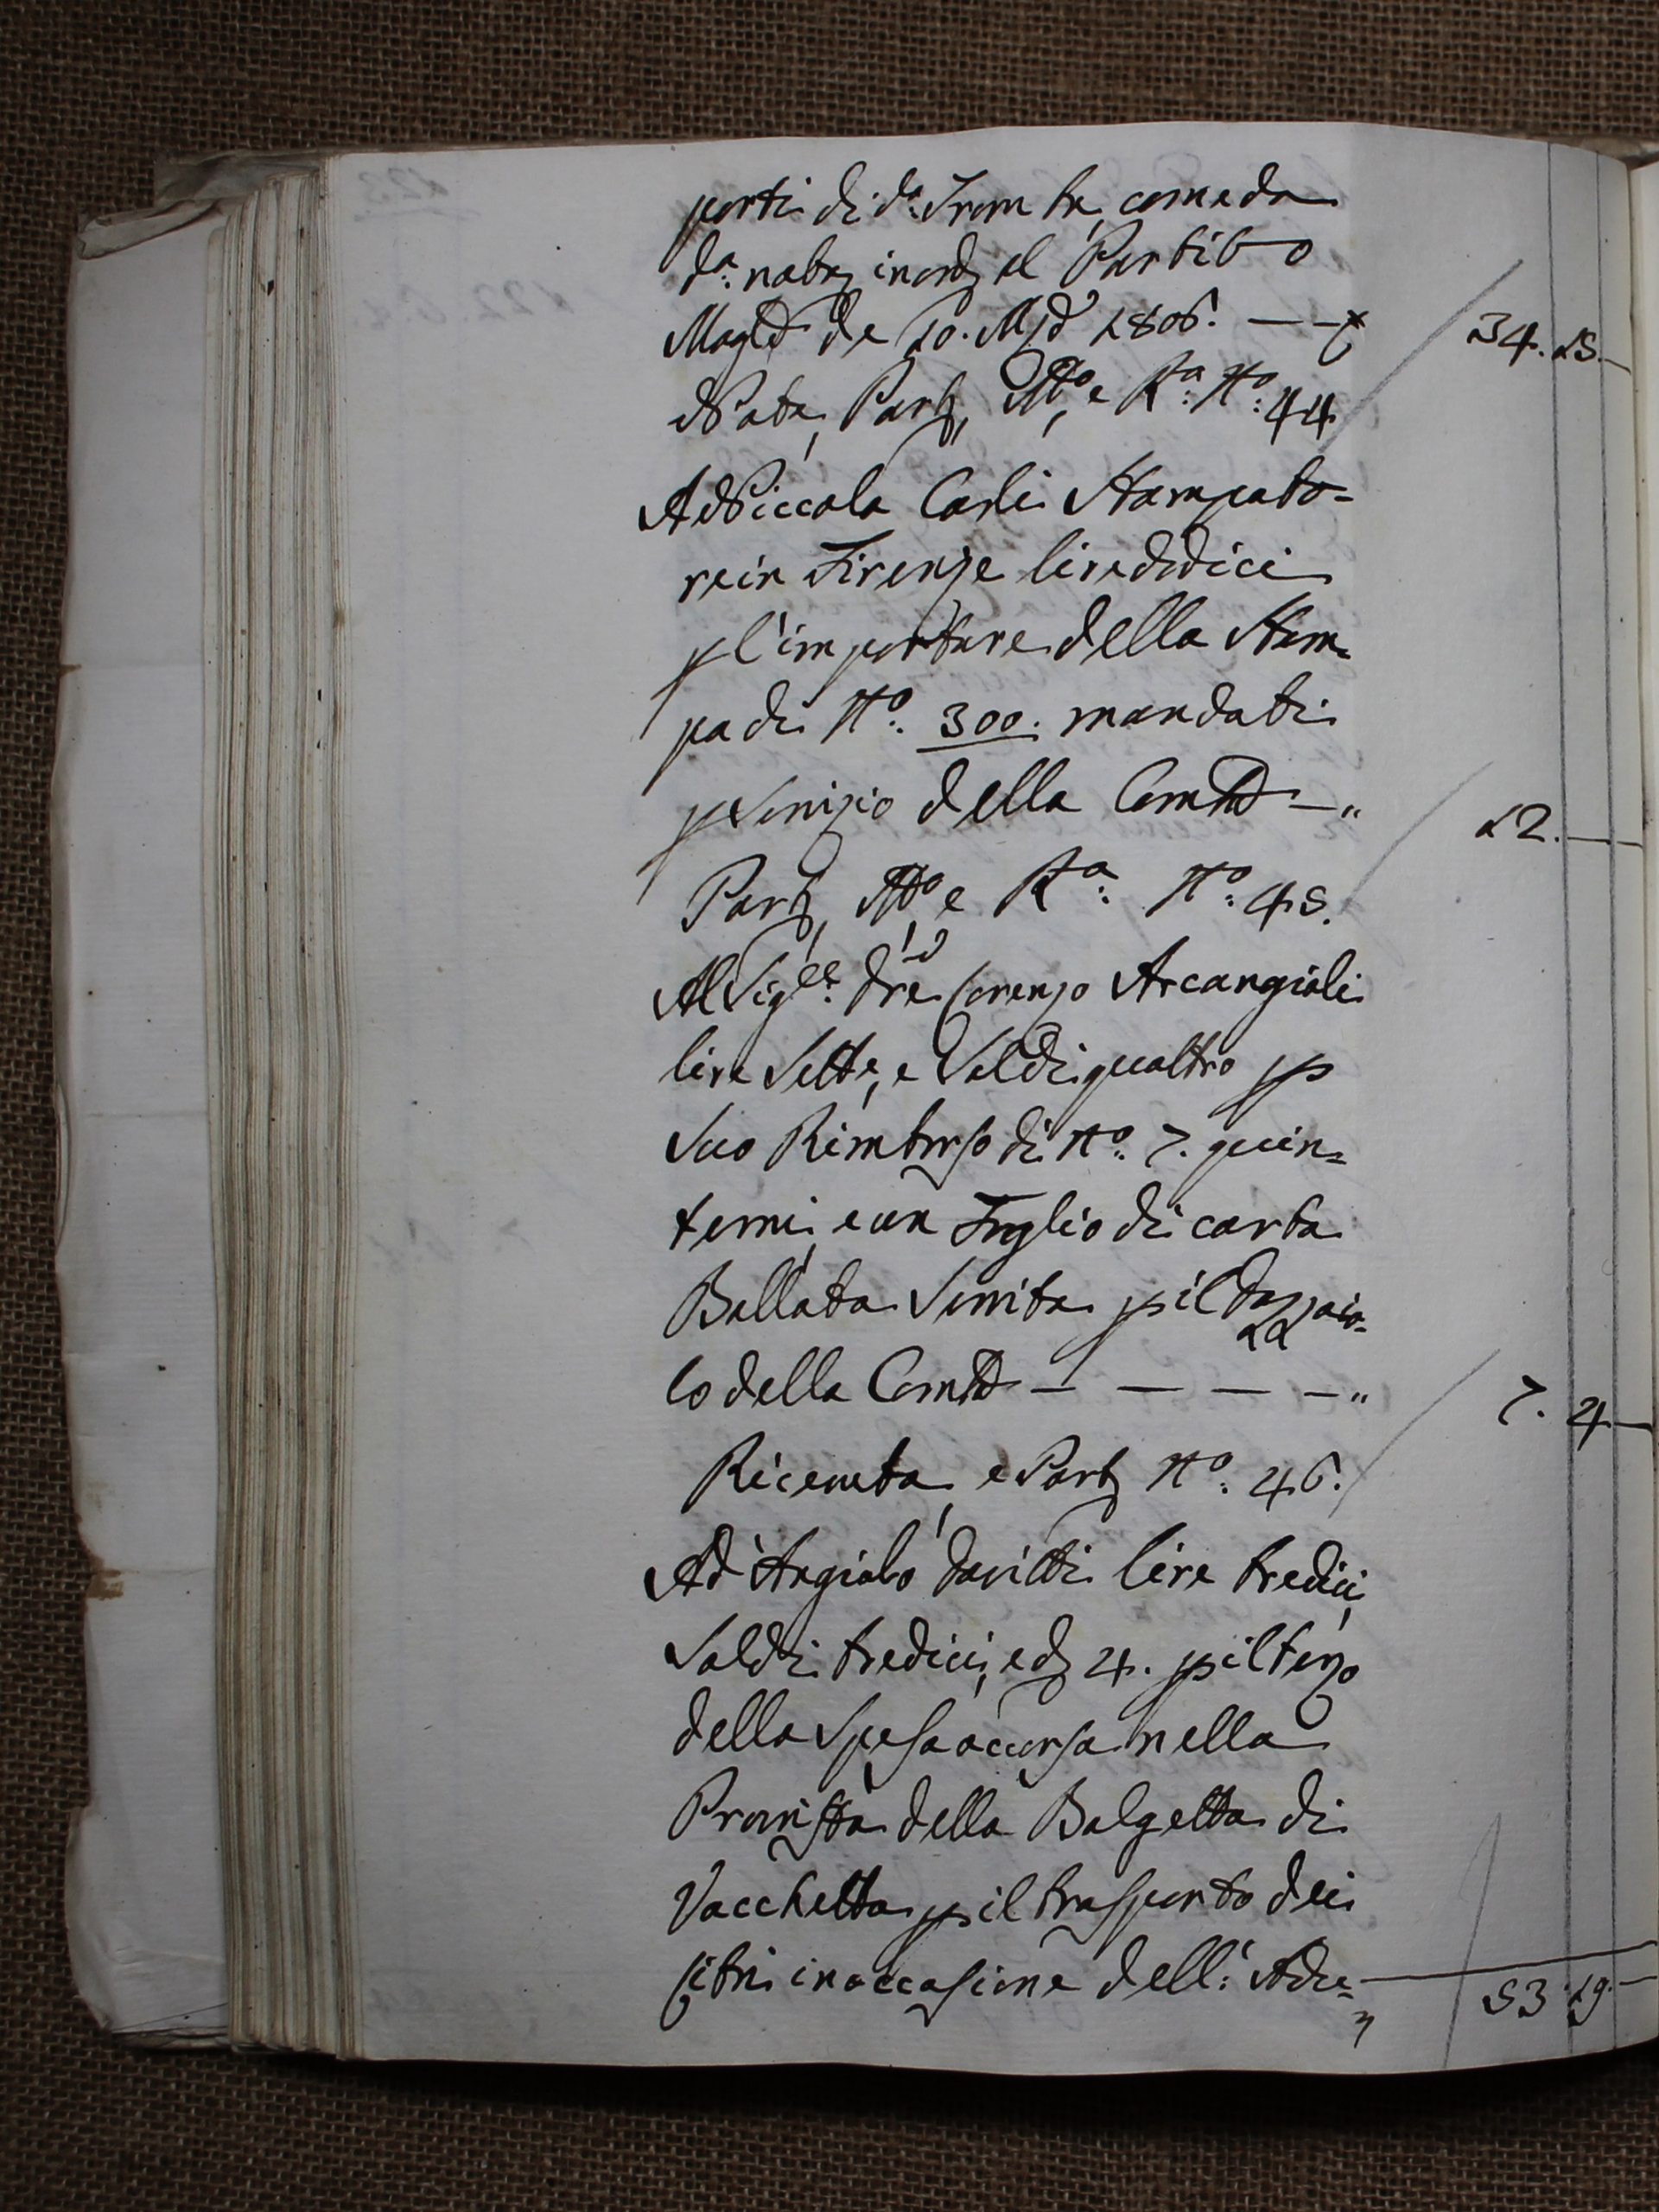 porti di d.ª Trombe, come da
d.ª nota, in ordẽ al Partito
Magle de 10. Mgd 1806. — — £ 34. 15. —
Nota, Partõ, Mto, e Rta: No: 44
A Niccola Carli Stampato=
re in Firenze lire dodici
p l'importare della Stam=
pa di No. 300. mandati
p servizio della Comtà — " 12. — —
Partõ, Mto, e Rta: No: 45.
Al Sigre: Dre Lorenzo Arcangioli
lire Sette, e Soldi quattro p
Suo Rimborso di No. 7. quin=
terni, e un Foglio di carta
Bollata Servita p il Dazzaio=
lo della Comtà — — — — " 7. 4 —
Riceuta, e Partõ No: 46.
Ad Angiolo Davitti lire tredici,
Soldi tredici, e d 4. p il terzo
della Spesa occorsa nella
Provista della Bolgetta di
Vacchetta p il trasporto dei
sitri in occasione dell: Adu=
53. 19. —